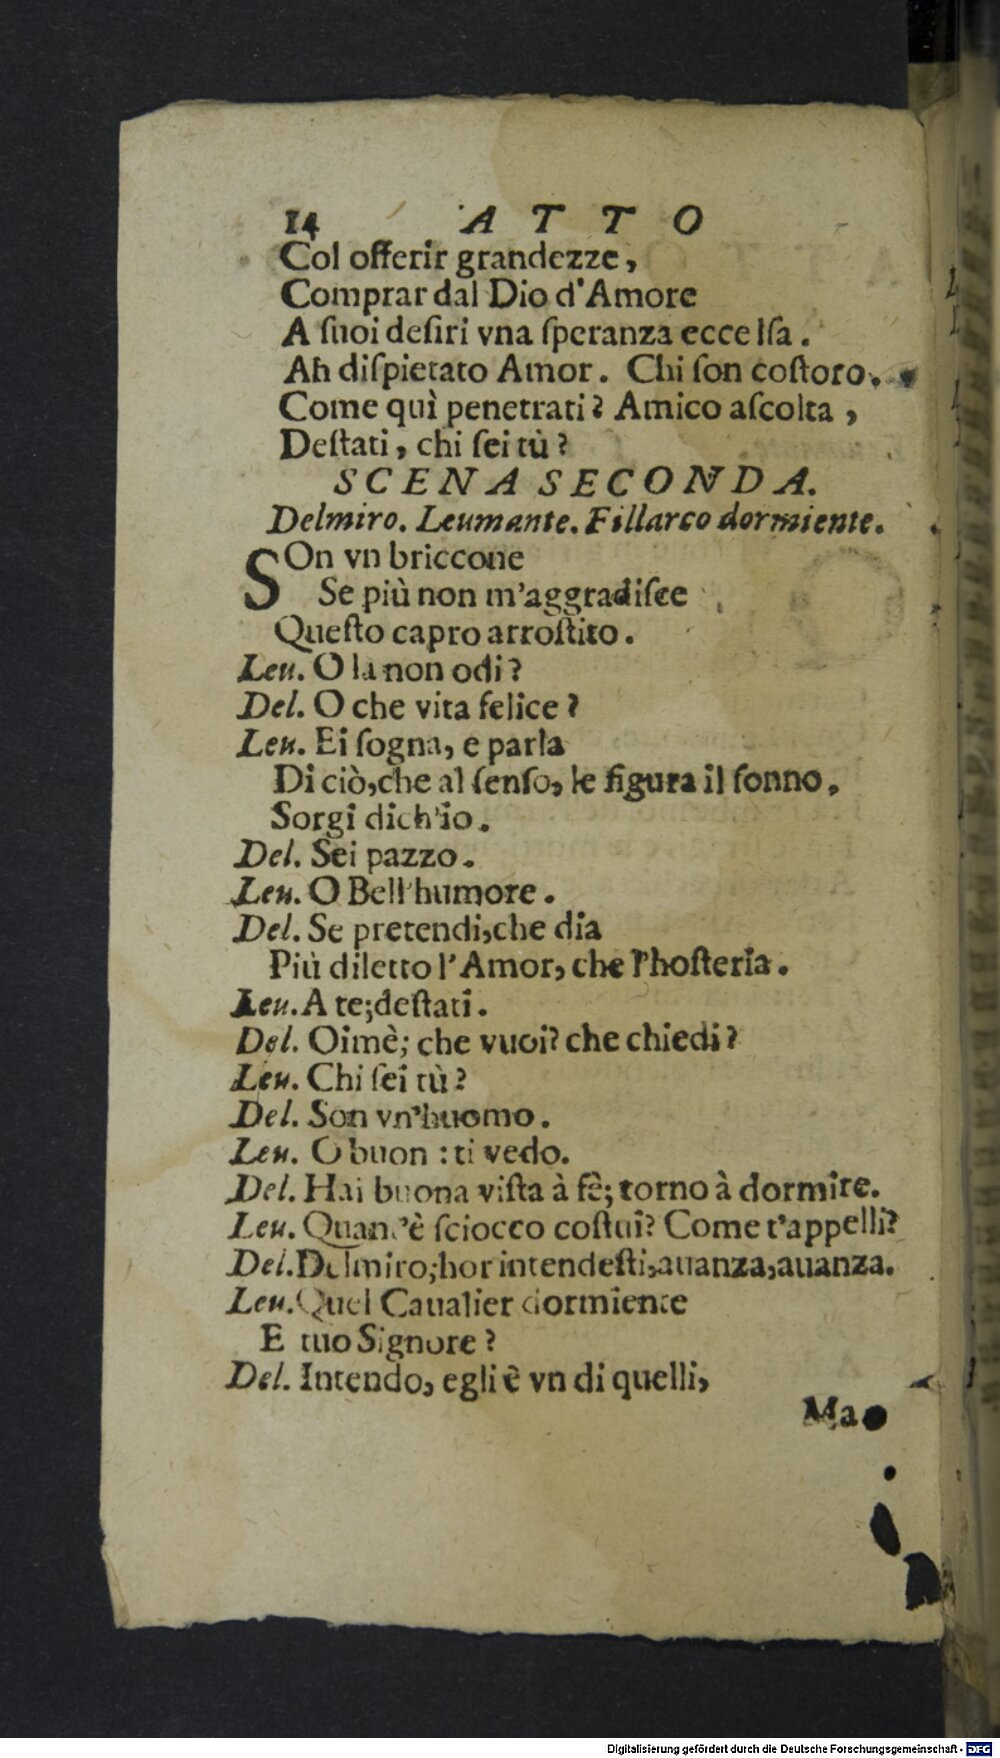 14 ATTO
Col offerir grandezze,
Comprar dal Dio d'Amore
A ſuoi deſiri vna ſperanza eccelſa.
Ah diſpietato Amor. Chi ſon coſtoro.
Come quì penetrati? Amico aſcolta,
Deſtati, chi ſei tù?
SCENA SECONDA.
Delmiro. Leumante. Fillarco dormiente.
SOn vn briccone
Se più non m'aggradiſce
Queſto capro arroſtito.
Leu. O la non odi?
Del. O che vita felice?
Leu. Ei ſogna, e parla
Di ciò, che al ſenſo, le figura il ſonno,
Sorgi dich'io.
Del. Sei pazzo.
Leu. O Bell'humore.
Del. Se pretendi, che dia
Più diletto l'Amor, che l'hoſteria.
Leu. A te; deſtati.
Del. Oimè; che vuoi? che chiedi?
Leu. Chi ſei tù?
Del. Son vn'huomo.
Leu. O buon : ti vedo.
Del. Hai buona viſta à fê; torno à dormire.
Leu. Quant'è ſciocco coſtui? Come t'appelli?
Del. Delmiro; hor intendeſti, auanza, auanza.
Leu. Quel Caualier dormiente
E tuo Signore?
Del. Intendo, egli è vn di quelli,
Ma
Digitalisierung gefördert durch die Deutsche Forschungsgemeinschaft - DFG